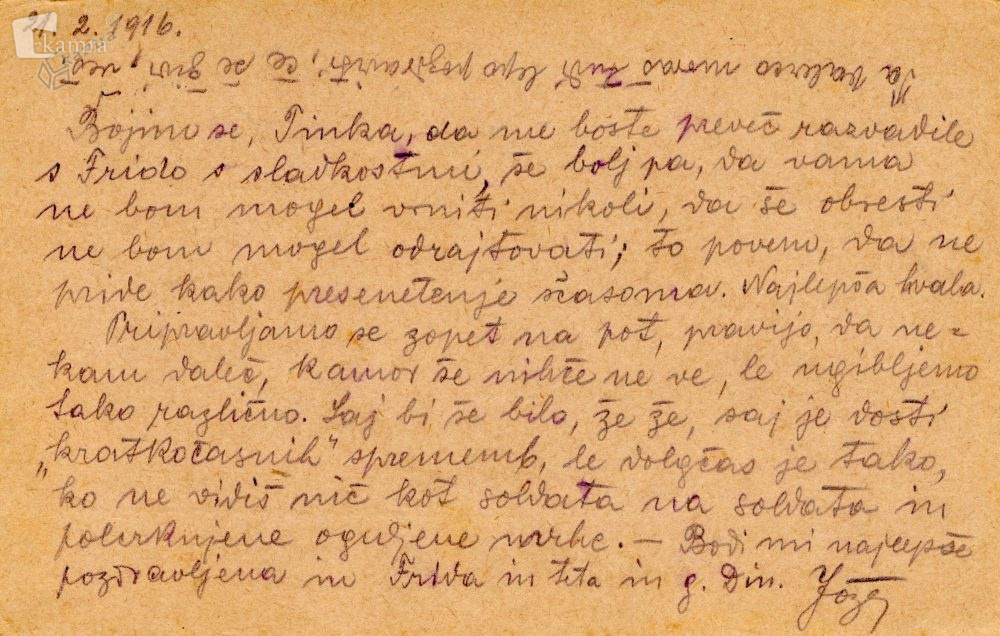 21. 2. 1916.
kamra
moraš tudi lepo pozdraviti, če še živi,
Bojim se, Tinka, da me boste preveč razvadile
s Frido s sladkostmi, še bolj pa, da vama
ne bom mogel vrniti nikoli, da še obresti
ne bom mogel odrajtovati; to povem, da ne
pride kako presenečenje sčasoma. Najlepša hvala.
Pripravljamo se zopet na pot, pravijo, da ne-
kam daleč, kamor še nihče ne ve, le ugibljemo
tako različno. Saj bi še bilo, že že, saj je dosti
„kratkočasnih" sprememb, le dolgčas je tako,
ko ne vidiš nič kot soldata na soldata in
oguljene mrhe. — Bodi mi najlepše
pozdravljena in Frida in teta in g. Din. Jože